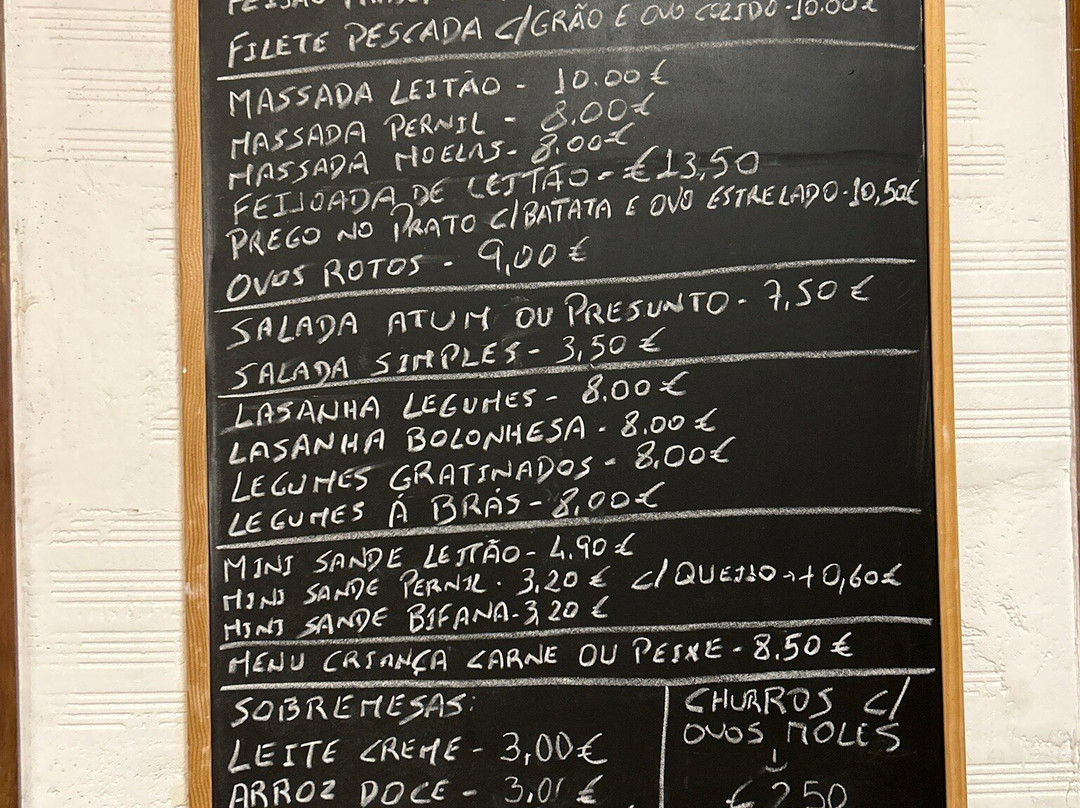 FILETE PESCADA C/GRÃO E OVO COZIDO-10.00€
MASSADA LEITÃO - 10.00€
MASSADA PERNIL - 8,00€
MASSADA MOELAS- 8.00€
FEIJOADA DE LEITÃO-€13,50
PREGO NO PRATO C/BATATA E OVO ESTRELADO-10,50€
OVOS ROTOS - 9,00€
SALADA ATUM OU PRESUNTO- 7,50€
SALADA SIMPLES- 3,50€
LASANHA LEGUMES- 8.00€
LASANHA BOLONHESA - 8.00€
LEGUMES GRATINADOS - 8,00€
LEGUMES Á BRÁS- 8,00€
MINI SANDE LEITÃO- 4.90€
MINI SANDE PERNIL - 3,20€ C/QUEIJO → +0,60€
MINI SANDE BIFANA-3,20€
MENU CRIANÇA CARNE OU PEIXE- 8.50€
SOBREMESAS:
LEITE CREME- 3,00€
ARROZ DOCE - €
CHURROS C/
OVOS MOLES
€2,50